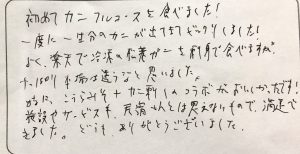 初めてカニフルコースを食べました!
一度に一生分のカニが出てきてビックリしました!
よく、楽天で冷凍の松葉ガニを刺身で食べますが、
やっぱり本場は違うなと思いました。
かにみそ+カニ刺しのコラボがおいしかったです!
施設やサービスも、民宿さんとは思えないもので、満足で
きました。どうも、ありがとうございました。